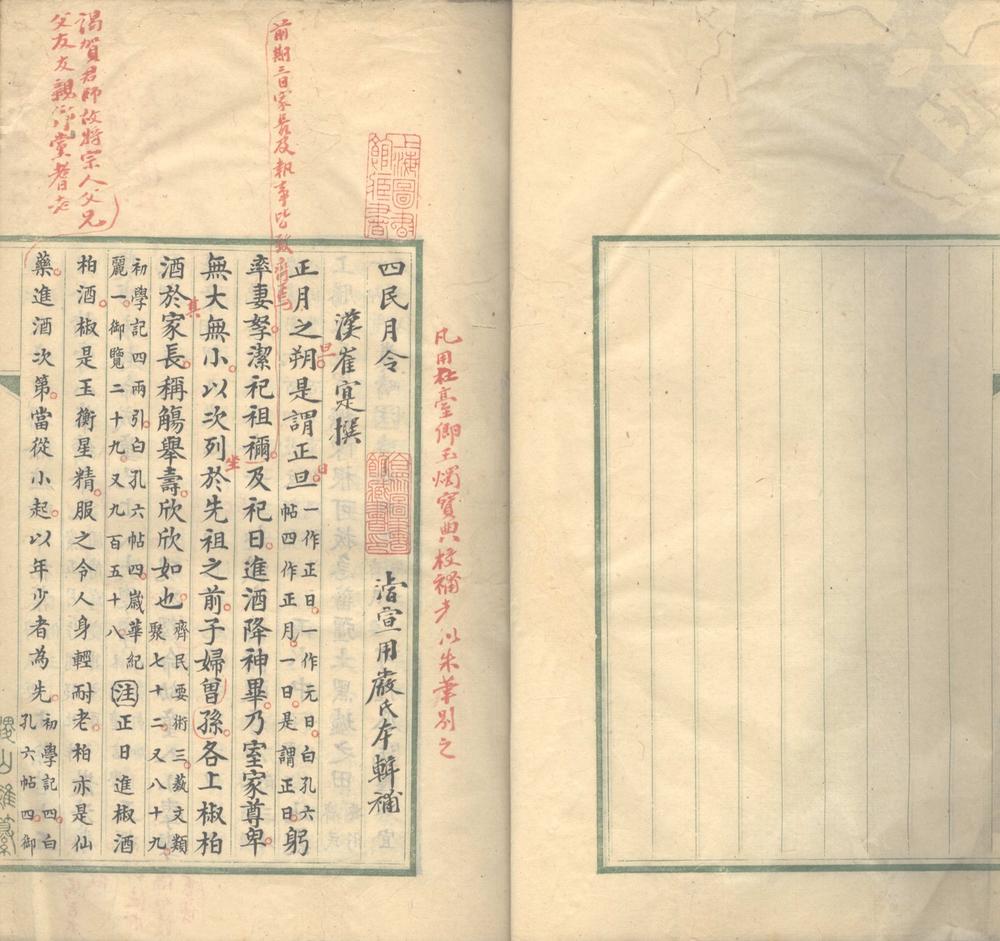 凡用杜臺卿玉燭寶典校補者以朱筆別之
上海圖書館藏書
四民月令
詒宣用嚴氏本輯補
漢崔寔撰
正月之朔是謂正旦一作正日一作元日白孔六帖四作正月一日是謂正日躬
率妻孥潔祀祖禰及祀日進酒降神畢乃室家尊卑
無大無小以次列於先祖之前子婦曾孫各上椒柏
酒於家長稱觴舉壽欣欣如也齊民要術三藝文類聚七十二又八十九
初學記四兩引白孔六帖四歲華紀麗一御覽二十九又九百五十八注正日進椒酒
柏酒椒是玉衡星精服之令人身輕耐老柏亦是仙
藥進酒次第當從小起以年少者為先初學記四白孔六帖四御
前期三日家長及執事皆致齊焉
旦
日
坐
其
謁賀君師故將宗人父兄
父友友親鄉黨耆老